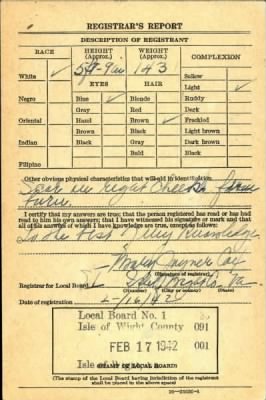 REGISTRAR'S REPORT
DESCRIPTION OF REGISTRANT
RACE HEIGHT (Approx.) WEIGHT (Approx.) COMPLEXION
5ft-9in 143
White ✓ Sallow
EYES HAIR Light ✓
Negro Blue ✓ Blonde Ruddy
Gray Red Dark
Oriental Hazel Brown ✓ Freckled
Brown Black Light brown
Indian Black Gray Dark brown
Bald Black
Filipino
Other obvious physical characteristics that will aid in identification
Scar on right Cheek from
burn.
I certify that my answers are true; that the person registered has read or has had
read to him his own answers; that I have witnessed his signature or mark and that
all of his answers of which I have knowledge are true, except as follows:
To the best of my knowledge
(Signature of registrar)
Registrar for Local Board 1 Va.
(Number) (City or county) (State)
Date of registration 2-16-42
Local Board No. 1
Isle of Wight County 091
FEB 17 1942 001
Isle of
STAMP OF LOCAL BOARD
(The stamp of the Local Board having jurisdiction of the registrant
shall be placed in the above space)